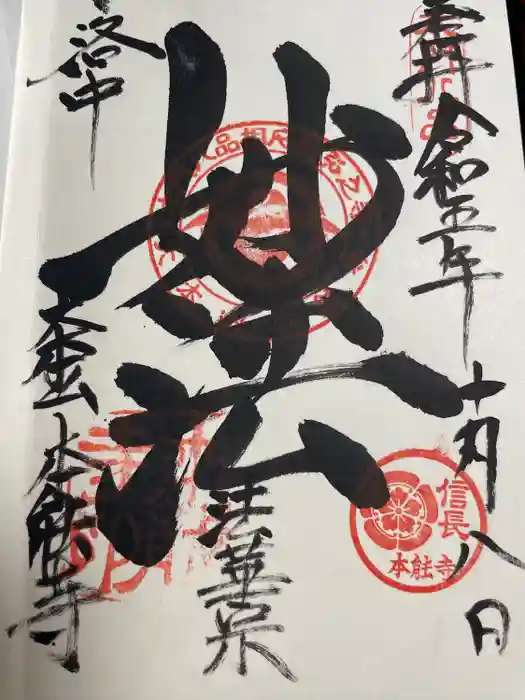 奉拝
令和五年
十月八日
妙法
法華宗
洛中
大本山
本能寺
信長
本能寺